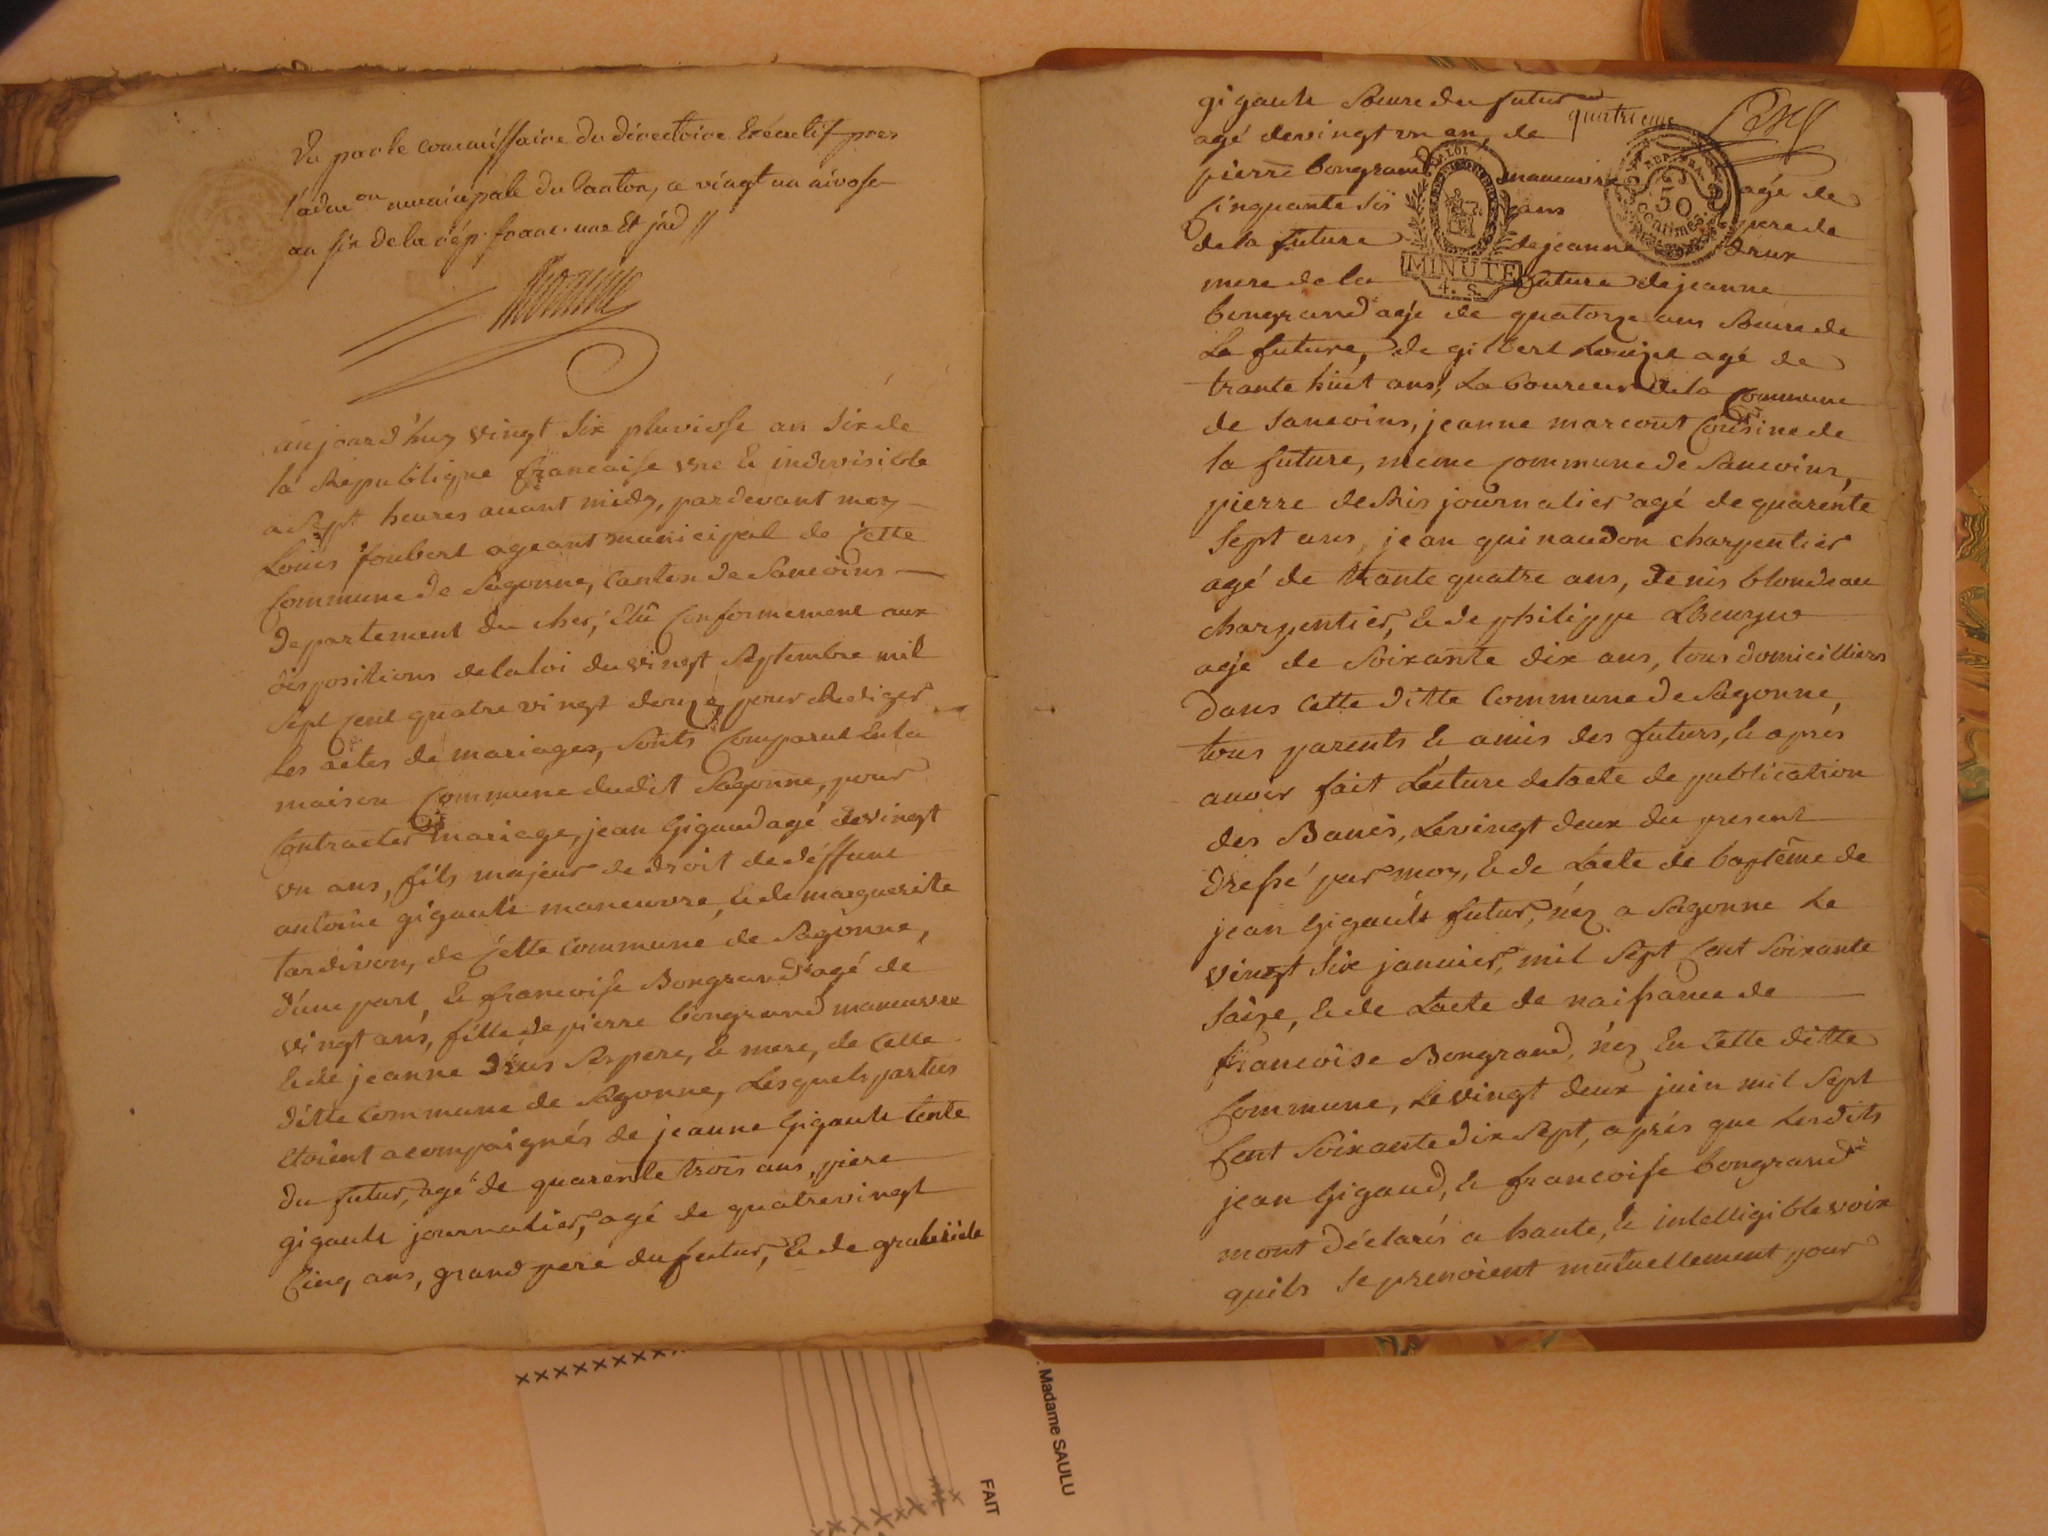 Vu par le commissaire du directoire Exécutif pres
l'adm.on municipale du Canton, ce vingt un nivose
an six de la rép. franc. une Et ind //
aujourd'huy vingt six pluviose an six de
la Republique francaise une & indivisible
a Sept heures avant midy, pardevant moy
Louis Joubert ageant municipal de Cette
Commune de Sagonne, Canton de Sancoins
departement du cher, Elû Conformement aux
dispositions de la loi du vingt Septembre mil
Sept Cent quatre vingt douze, pour Rediger
Les actes de mariages, Sonts Comparut En la
maison Commune dudit Sagonne, pour
Contracter mariage, jean Gigaud agé de vingt
un ans, fils majeur de droit de déffunt
antoine gigault maneuvre, & de marguerite
tardivon, de Cette Commune de Sagonne,
d'une part, & francoise Bongrand agé de
vingt ans, fille de pierre bongrand maneuvre
& de jeanne Drus Ses pere, & mere, de Cette
ditte Commune de Sagonne, Lesquels parties
etoient acompaignés de jeanne Gigault tente
du futur, agé de quarente trois ans, piere
gigault journalier, agé de quatrevingt
Cinq ans, grand pere du futur, & de
gigault Soeure du futur
quatrieme
agé de vingt un an, de
pierre bongrand maneuvre agé de
Cinquante Six ans pere de
de la future de jeanne Drux
LA LOI
50
CENTIMES
MINUTE
4. S.
mere de la future de jeanne
bongrand agé de quatorze ans Soeure de
La future, de gilbert agé de
trante huit ans, Laboureur de la Commune
de Sancoins, jeanne marcout Cousine de
la future, meme Commune de Sancoins,
pierre journalier agé de quarente
Sept ans, jean guinaudon charpentier
agé de trante quatre ans, denis blondeau
charpentier, & de philippe
age de Soixante dix ans, tous domicilliers
Dans Cette ditte Commune de Sagonne,
tous parents & amis des futurs, & apres
avoir fait Lecture de lacte de publication
des Banis, Le vingt deux du present
Dressé par moy, & de Lacte de baptême de
jean Gigault futur, néz a Sagonne Le
vingt Six janvier, mil Sept Cent Soixante
Saize, & de Lacte de naissance de
francoise Bongrand, néz En Cette ditte
Commune, Le vingt deux juin mil Sept
Cent Soixante dix Sept, aprés que Lesdits
jean Gigaud, & francoise bongrand
mont déclarés a haute, & intelligible voix
quils Se prenoient mutuellement pour
Madame SAULU
FAIT